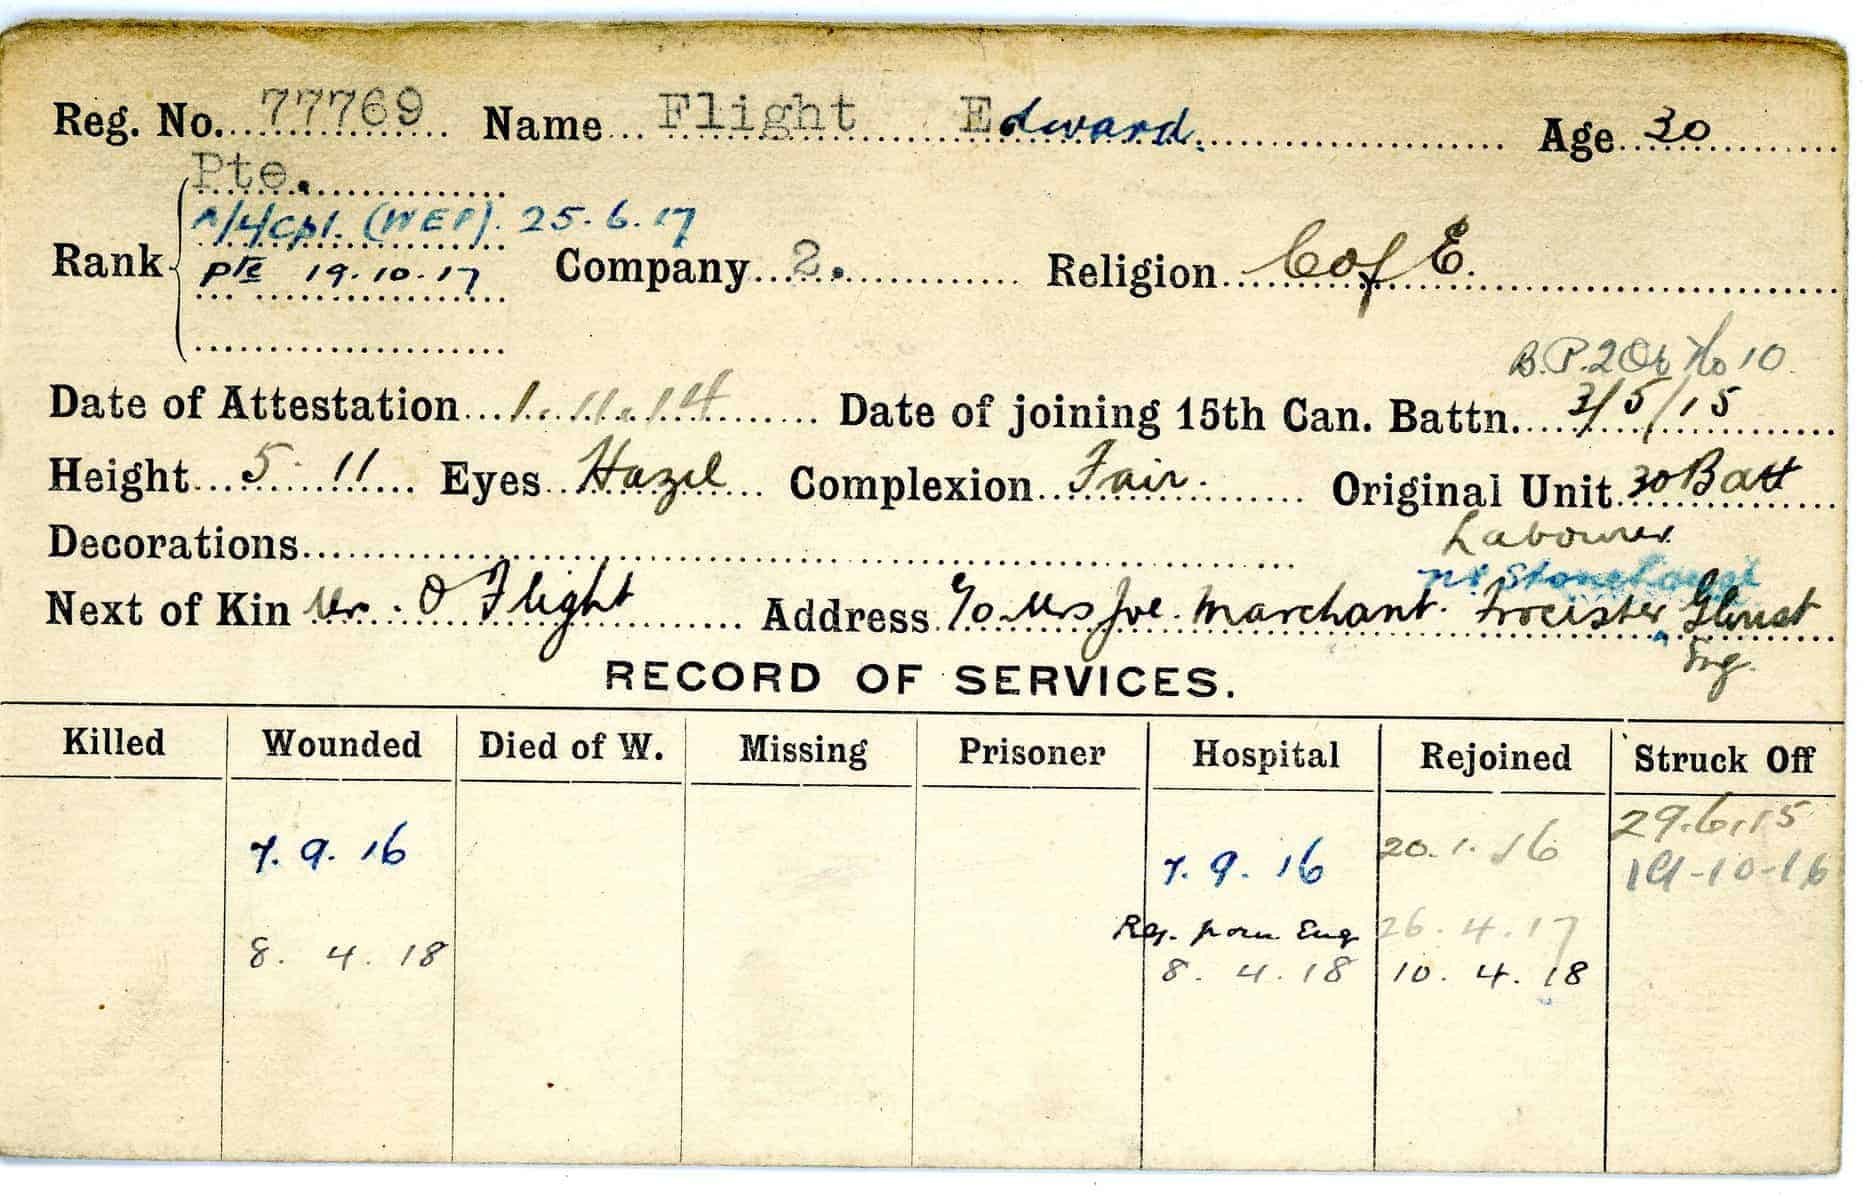 Reg. No. 77769 Name Flight Edward. Age 30
Pte.
A/L/Cpl. (WEP). 25.6.17
Rank Pte 19.10.17 Company 2. Religion C of E.
B.P.2 No 10
Date of Attestation 1.11.14 Date of joining 15th Can. Battn. 3/5/15
Height 5 11 Eyes Hazel Complexion Fair. Original Unit 30 Batt
Decorations Labourer
nr Stonehouse
Next of Kin Mr. O Flight Address C/o Mrs Joe Marchant. Frocester Gloust
Eng.
RECORD OF SERVICES.
Killed Wounded Died of W. Missing Prisoner Hospital Rejoined Struck Off
29.6.15
7.9.16 7.9.16 20.1.16 19-10-16
from Eng 26.4.17
8.4.18 8.4.18 10.4.18